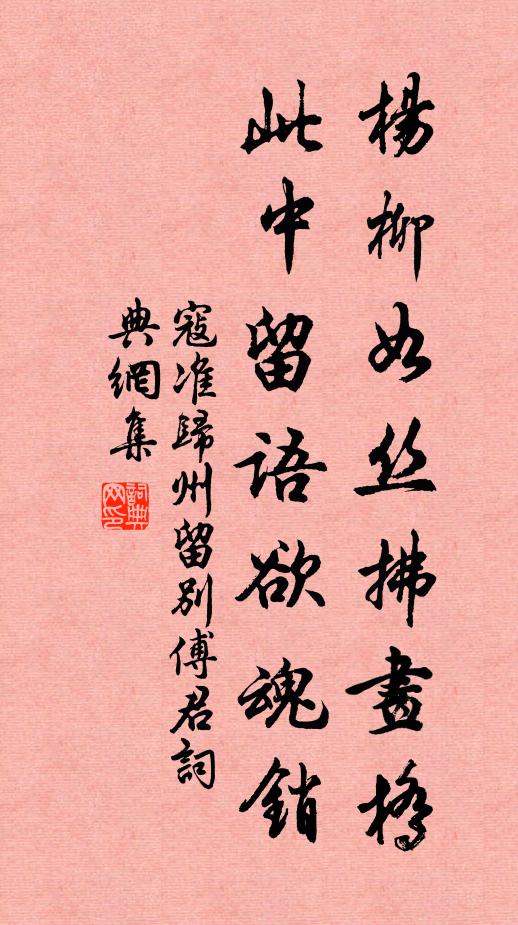 楊柳如丝拂畫橋
此中留語欲魂銷
寇准歸州留別傅君詞
典網集
詞典
网印